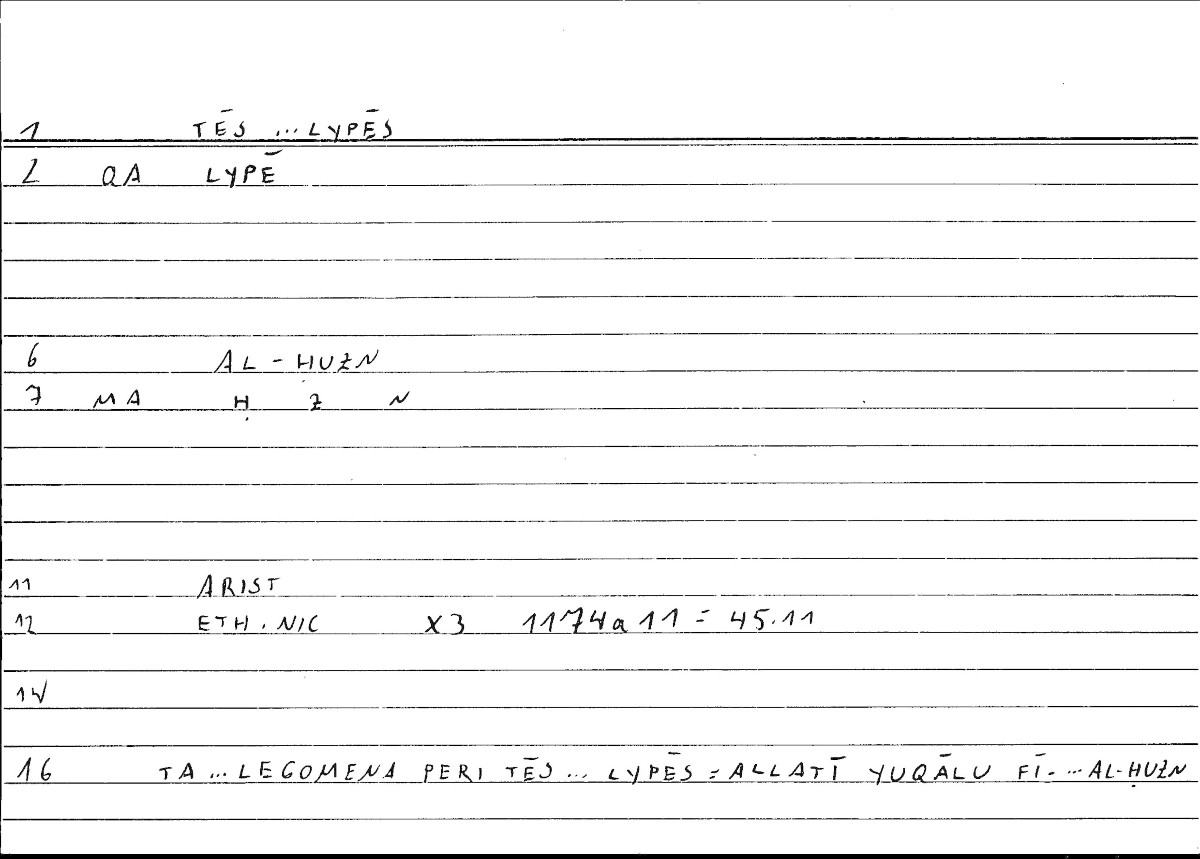 1 TĒS ... LYPĒS
2 QA LYPĒ
6 AL-ḤUZN
7 MA Ḥ Z N
11 ARIST
12 ETH. NIC X3 1174a11 = 45.11
14
16 TA ... LEGOMENA PERI TĒS ... LYPĒS = ALLATĪ YUQĀLU FĪ- ... AL-ḤUZN